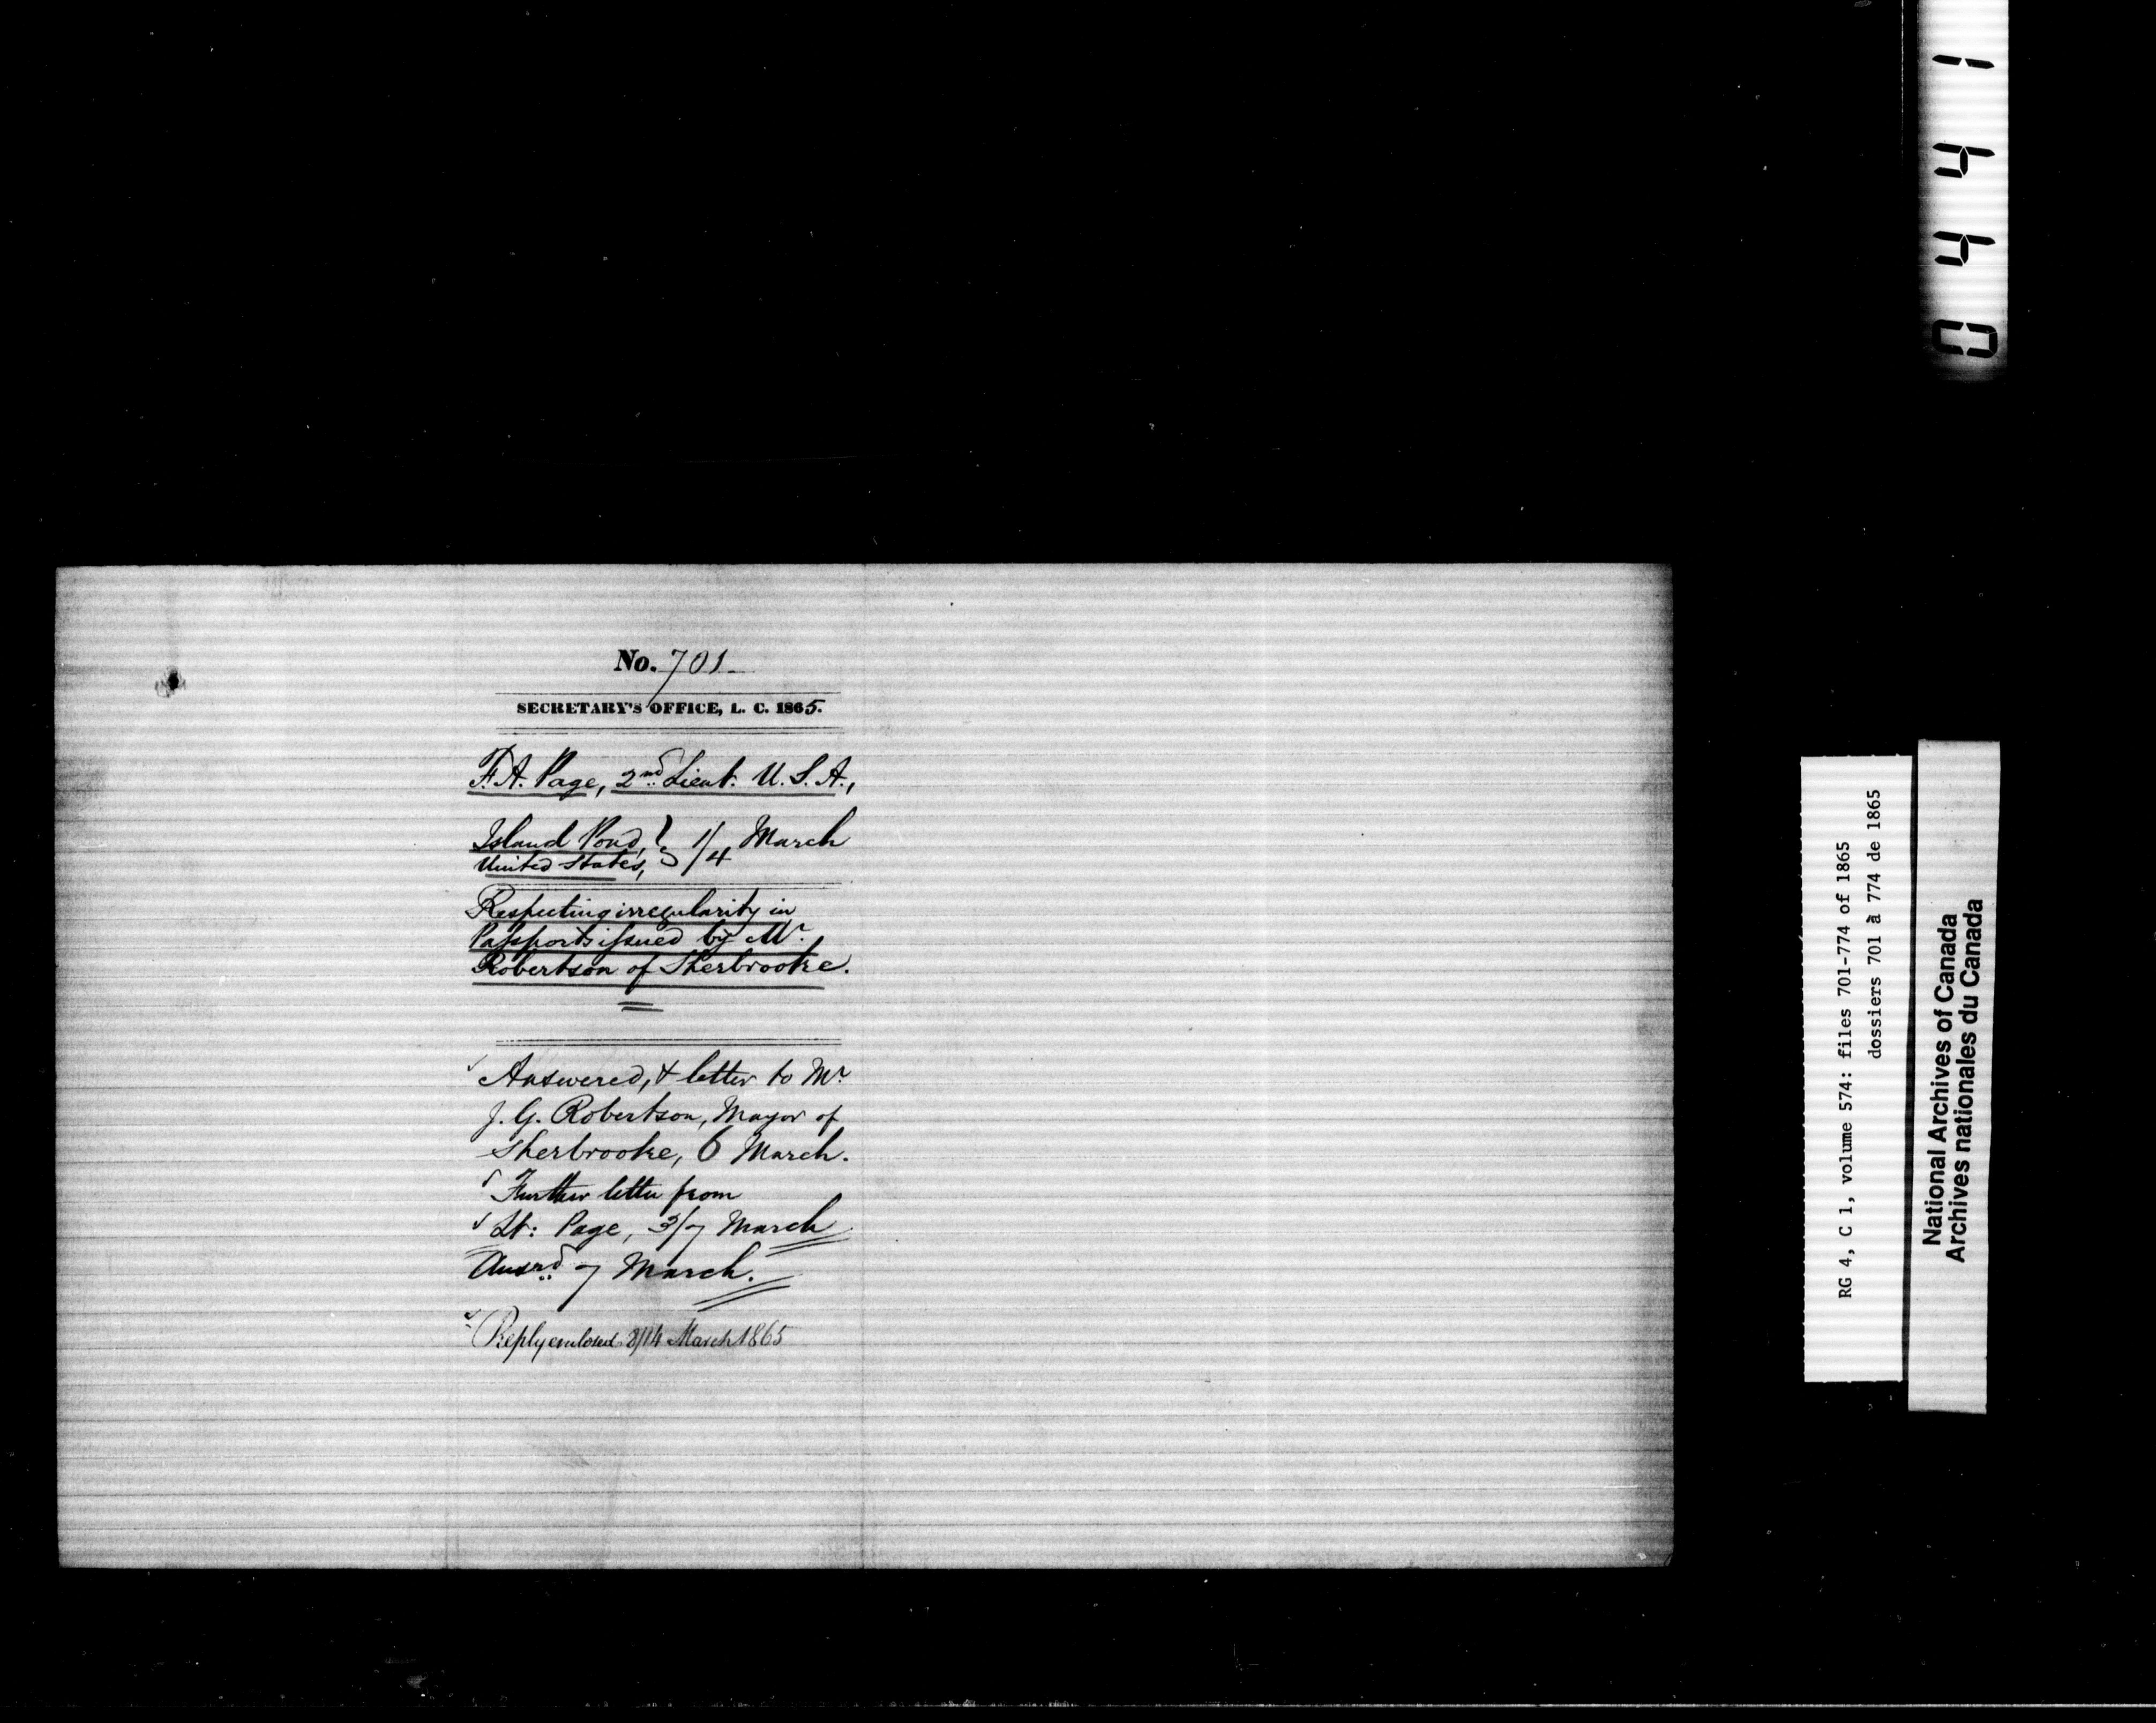 No. 701
SECRETARY'S OFFICE, L. C. 1865.
F. A. Page, 2nd Lieut. U. S. A.,
Island Pond, } 1/4 March
United States,
Respecting irregularity in
Passports issued by Mr.
Robertson of Sherbrooke.
Answered, & letter to Mr.
J. G. Robertson, Mayor of
Sherbrooke, 6 March.
Further letter from
Lt: Page, 3/7 March
Answd 7 March.
Reply enclosed 8/14 March 1865
0441
RG 4, C 1, volume 574: files 701-774 of 1865
dossiers 701 à 774 de 1865
National Archives of Canada
Archives nationales du Canada